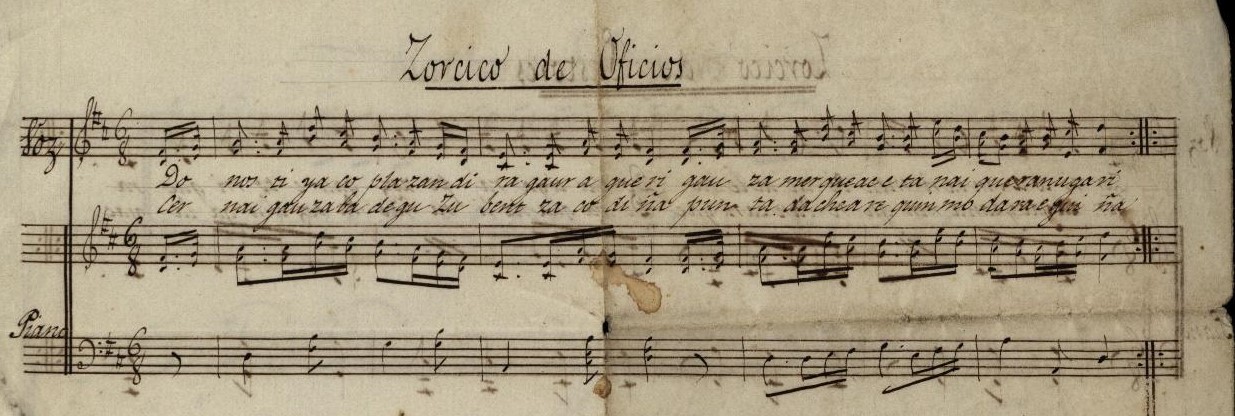 Zorcico de Oficios
Voz
Do nos ti ya co plazan di ra gaur a que ri gau za mer queac e ta nai quezanugari
Cer nai gauza ba degu Zu bent za co di ña pun ta dacheare quin mo darae qui ña
Piano